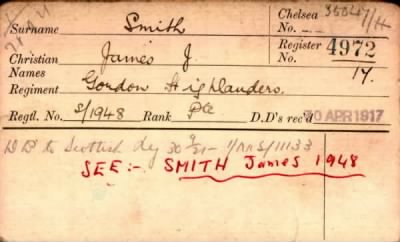 Surname Smith Chelsea No. 35047/H
Christian Names James J Register No. 4972
17.
Regiment Gordon Highlanders.
Regtl. No. S/1948 Rank Pte D.D's rec'd 30 APR 1917
to Scottish 30
SEE:- SMITH James 1948